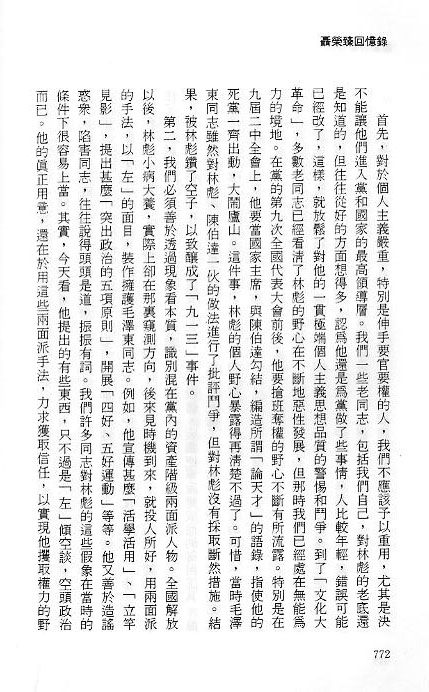 聶榮臻回憶錄
首先，對於個人主義嚴重，特別是伸手要官要權的人，我們不應該予以重用，尤其是決
不能讓他們進入黨和國家的最高領導層。我們一些老同志，包括我們自己，對林彪的老底還
是知道的，但往往從好的方面想得多，認爲他還是爲黨做了些事情，人比較年輕，錯誤可能
已經改了，這樣，就放鬆了對他的一貫極端個人主義思想品質的警惕和鬥爭。到了「文化大
革命」，多數老同志已經看清了林彪的野心在不斷地惡性發展，但那時我們已經處在無能爲
力的境地。在黨的第九次全國代表大會前後，他要搶班奪權的野心不斷有所流露。特別是在
九屆二中全會上，他要當國家主席，與陳伯達勾結，編造所謂「論天才」的語錄，指使他的
死黨一齊出動，大鬧廬山。這件事，林彪的個人野心暴露得再清楚不過了。可惜，當時毛澤
東同志雖然對林彪、陳伯達一伙的做法進行了批評鬥爭，但對林彪沒有採取斷然措施。結
果，被林彪鑽了空子，以致釀成了「九一三」事件。
第二，我們必須善於透過現象看本質，識別混在黨內的資產階級兩面派人物。全國解放
以後，林彪小病大養，實際上卻在那裏窺測方向，後來見時機到來，就投人所好，用兩面派
的手法，以「左」的面目，裝作擁護毛澤東同志。例如，他宣傳甚麼「活學活用」、「立竿
見影」，提出甚麼「突出政治的五項原則」，開展「四好、五好運動」等等。他又善於造謠
惑衆，陷害同志，往往說得頭頭是道，振振有詞。我們許多同志對林彪的這些假象在當時的
條件下很容易上當。其實，今天看，他提出的有些東西，只不過是「左」傾空談，空頭政治
而已。他的眞正用意，還在於用這些兩面派手法，力求獲取信任，以實現他攫取權力的野
772